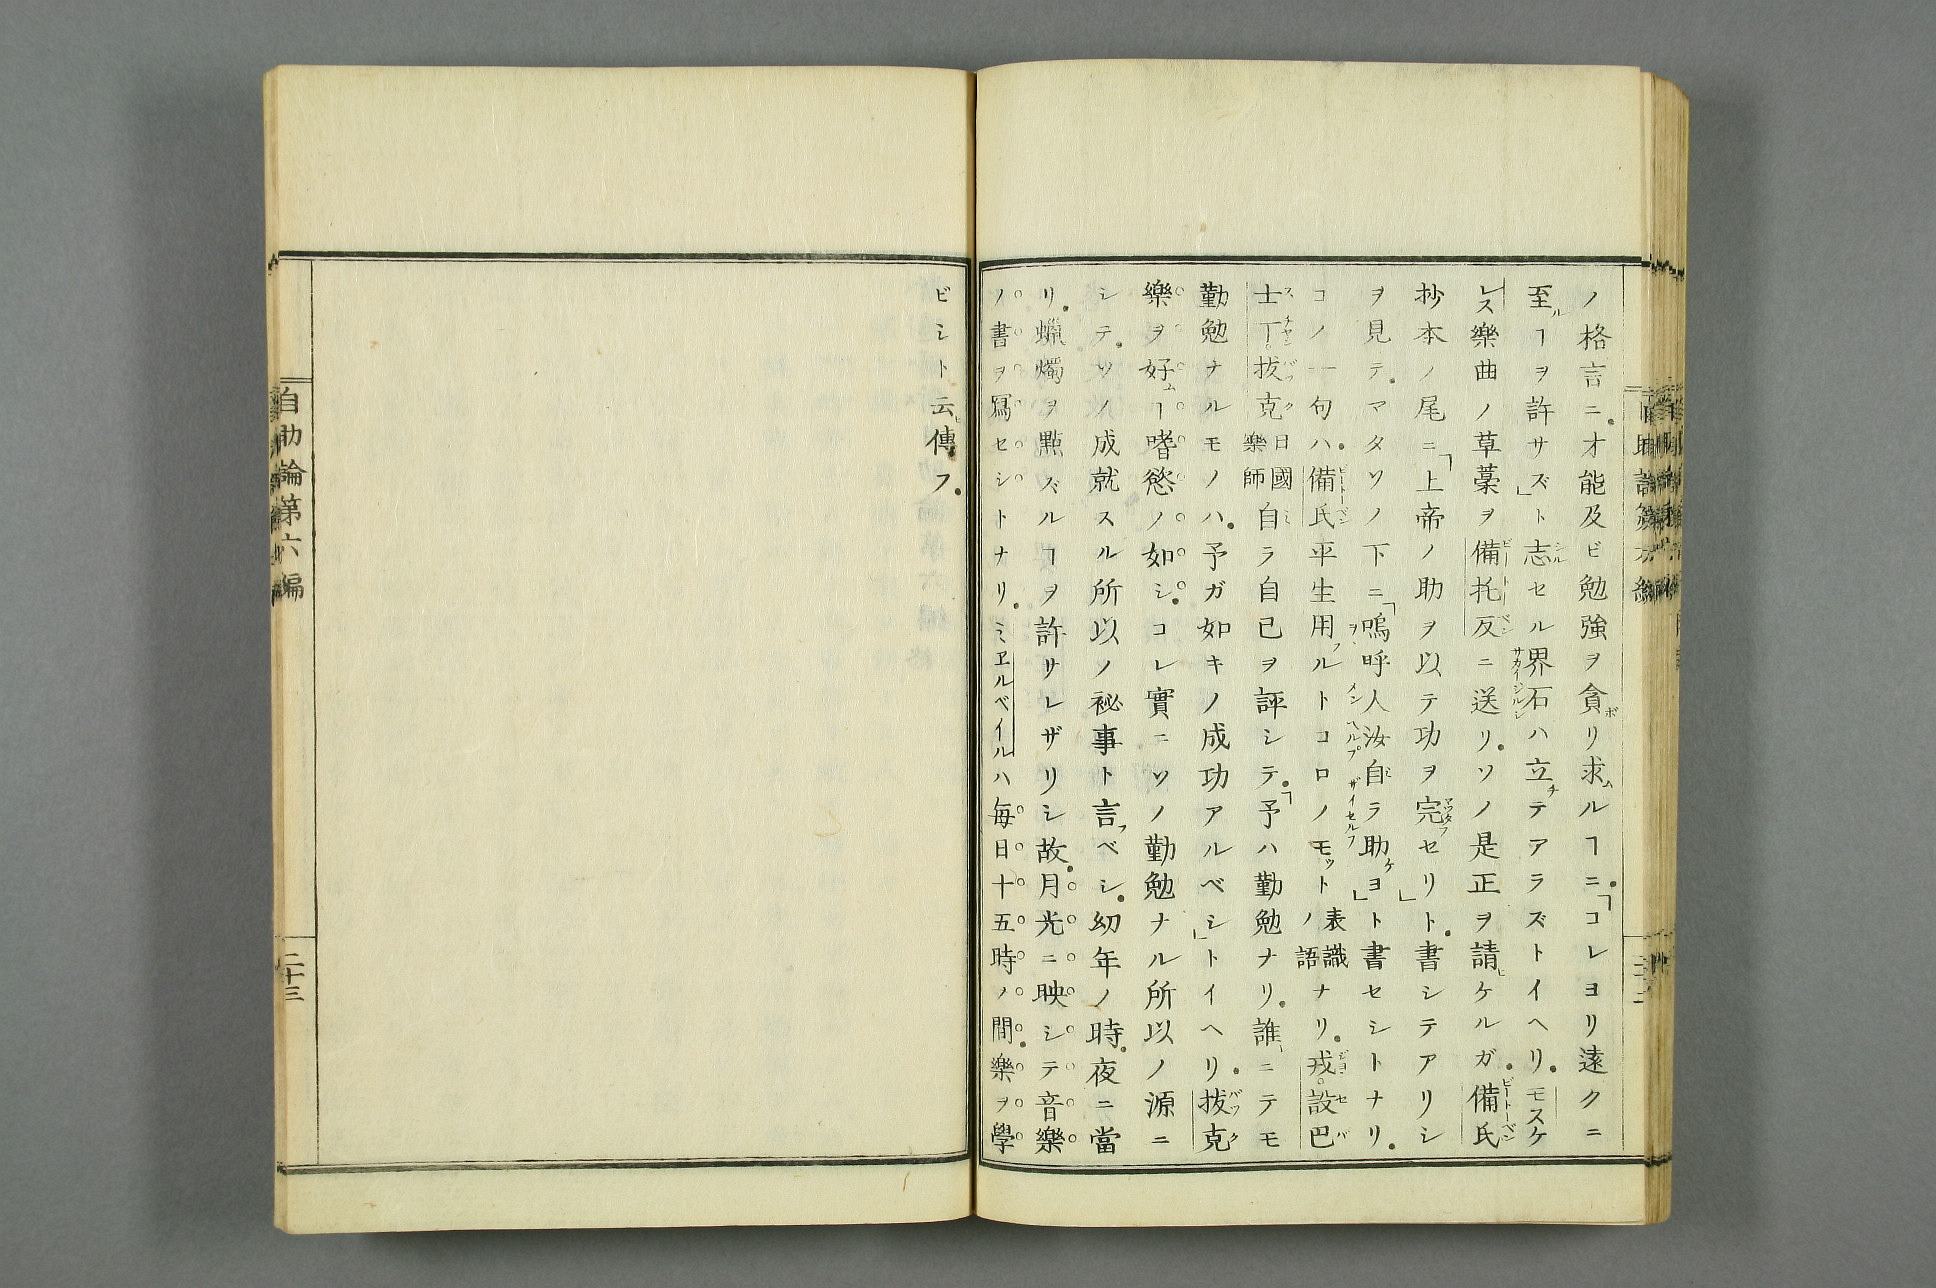 ノ格言ニ才能及ビ勉強ヲ貪リ求ムルヿニ「コレヨリ遠クニ
至ルヿヲ許サズ」ト志セル界石ハ立チテアラズトイヘリモスケ
レス樂曲ノ草藁ヲ備托反ニ送リソノ是正ヲ請ヒケルガ備氏
抄本ノ尾ニ「上帝ノ助ヲ以テ功ヲ完セリ」ト書シテアリシ
ヲ見テマタソノ下ニ「嗚呼人汝自ラ助ケヨ」ト書セシトナリ
コノ一句ハ備氏平生用フルトコロノモットー表識ノ語ナリ戎設巴
士丁拔克日國樂師自ラ自己ヲ評シテ「予ハ勤勉ナリ誰ニテモ
勤勉ナルモノハ予ガ如キノ成功アルベシ」トイヘリ拔克
樂ヲ好ムヿ嗜慾ノ如シコレ實ニソノ勤勉ナル所以ノ源ニ
シテソノ成就スル所以ノ祕事ト言フベシ幼年ノ時夜ニ當
リ蠟燭ヲ點ズルヿヲ許サレザリシ故月光ニ映シテ音樂
ノ書ヲ寫セシトナリミヱルベイルハ毎日十五時ノ間樂ヲ學
ビシト云ヒ傳フ
自助論第六編
二十三